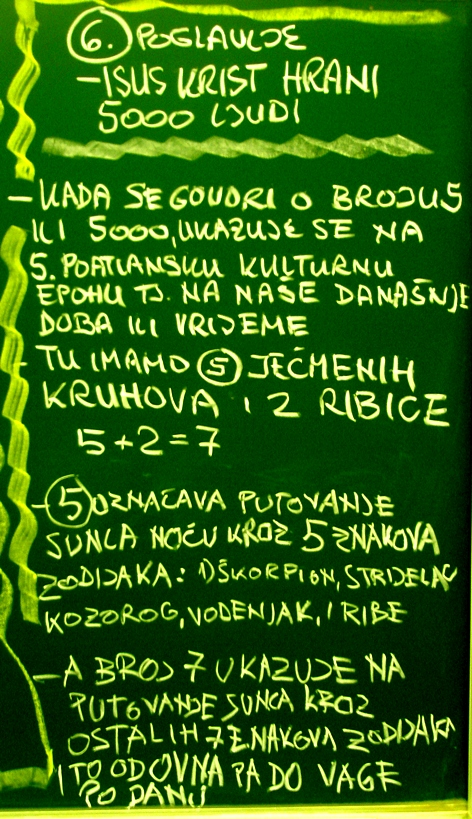 6. POGLAVLJE
-ISUS KRIST HRANI
5000 LJUDI
- KADA SE GOVORI O BROJU 5
ILI 5000, UKAZUJE SE NA
5. POATLANSKU KULTURNU
EPOHU TJ. NA NAŠE DANAŠNJE
DOBA ILI VRIJEME
- TU IMAMO 5 JEČMENIH
KRUHOVA I 2 RIBICE
5+2=7
- 5 OZNAČAVA PUTOVANJE
SUNCA NOĆU KROZ 5 ZNAKOVA
ZODIJAKA: 1) ŠKORPION, STRIJELAC
KOZOROG, VODENJAK, I RIBE
- A BROJ 7 UKAZUJE NA
PUTOVANJE SUNCA KROZ
OSTALIH 7 ZNAKOVA ZODIJAKA
I TO OD OVNA PA DO VAGE
PO DANU